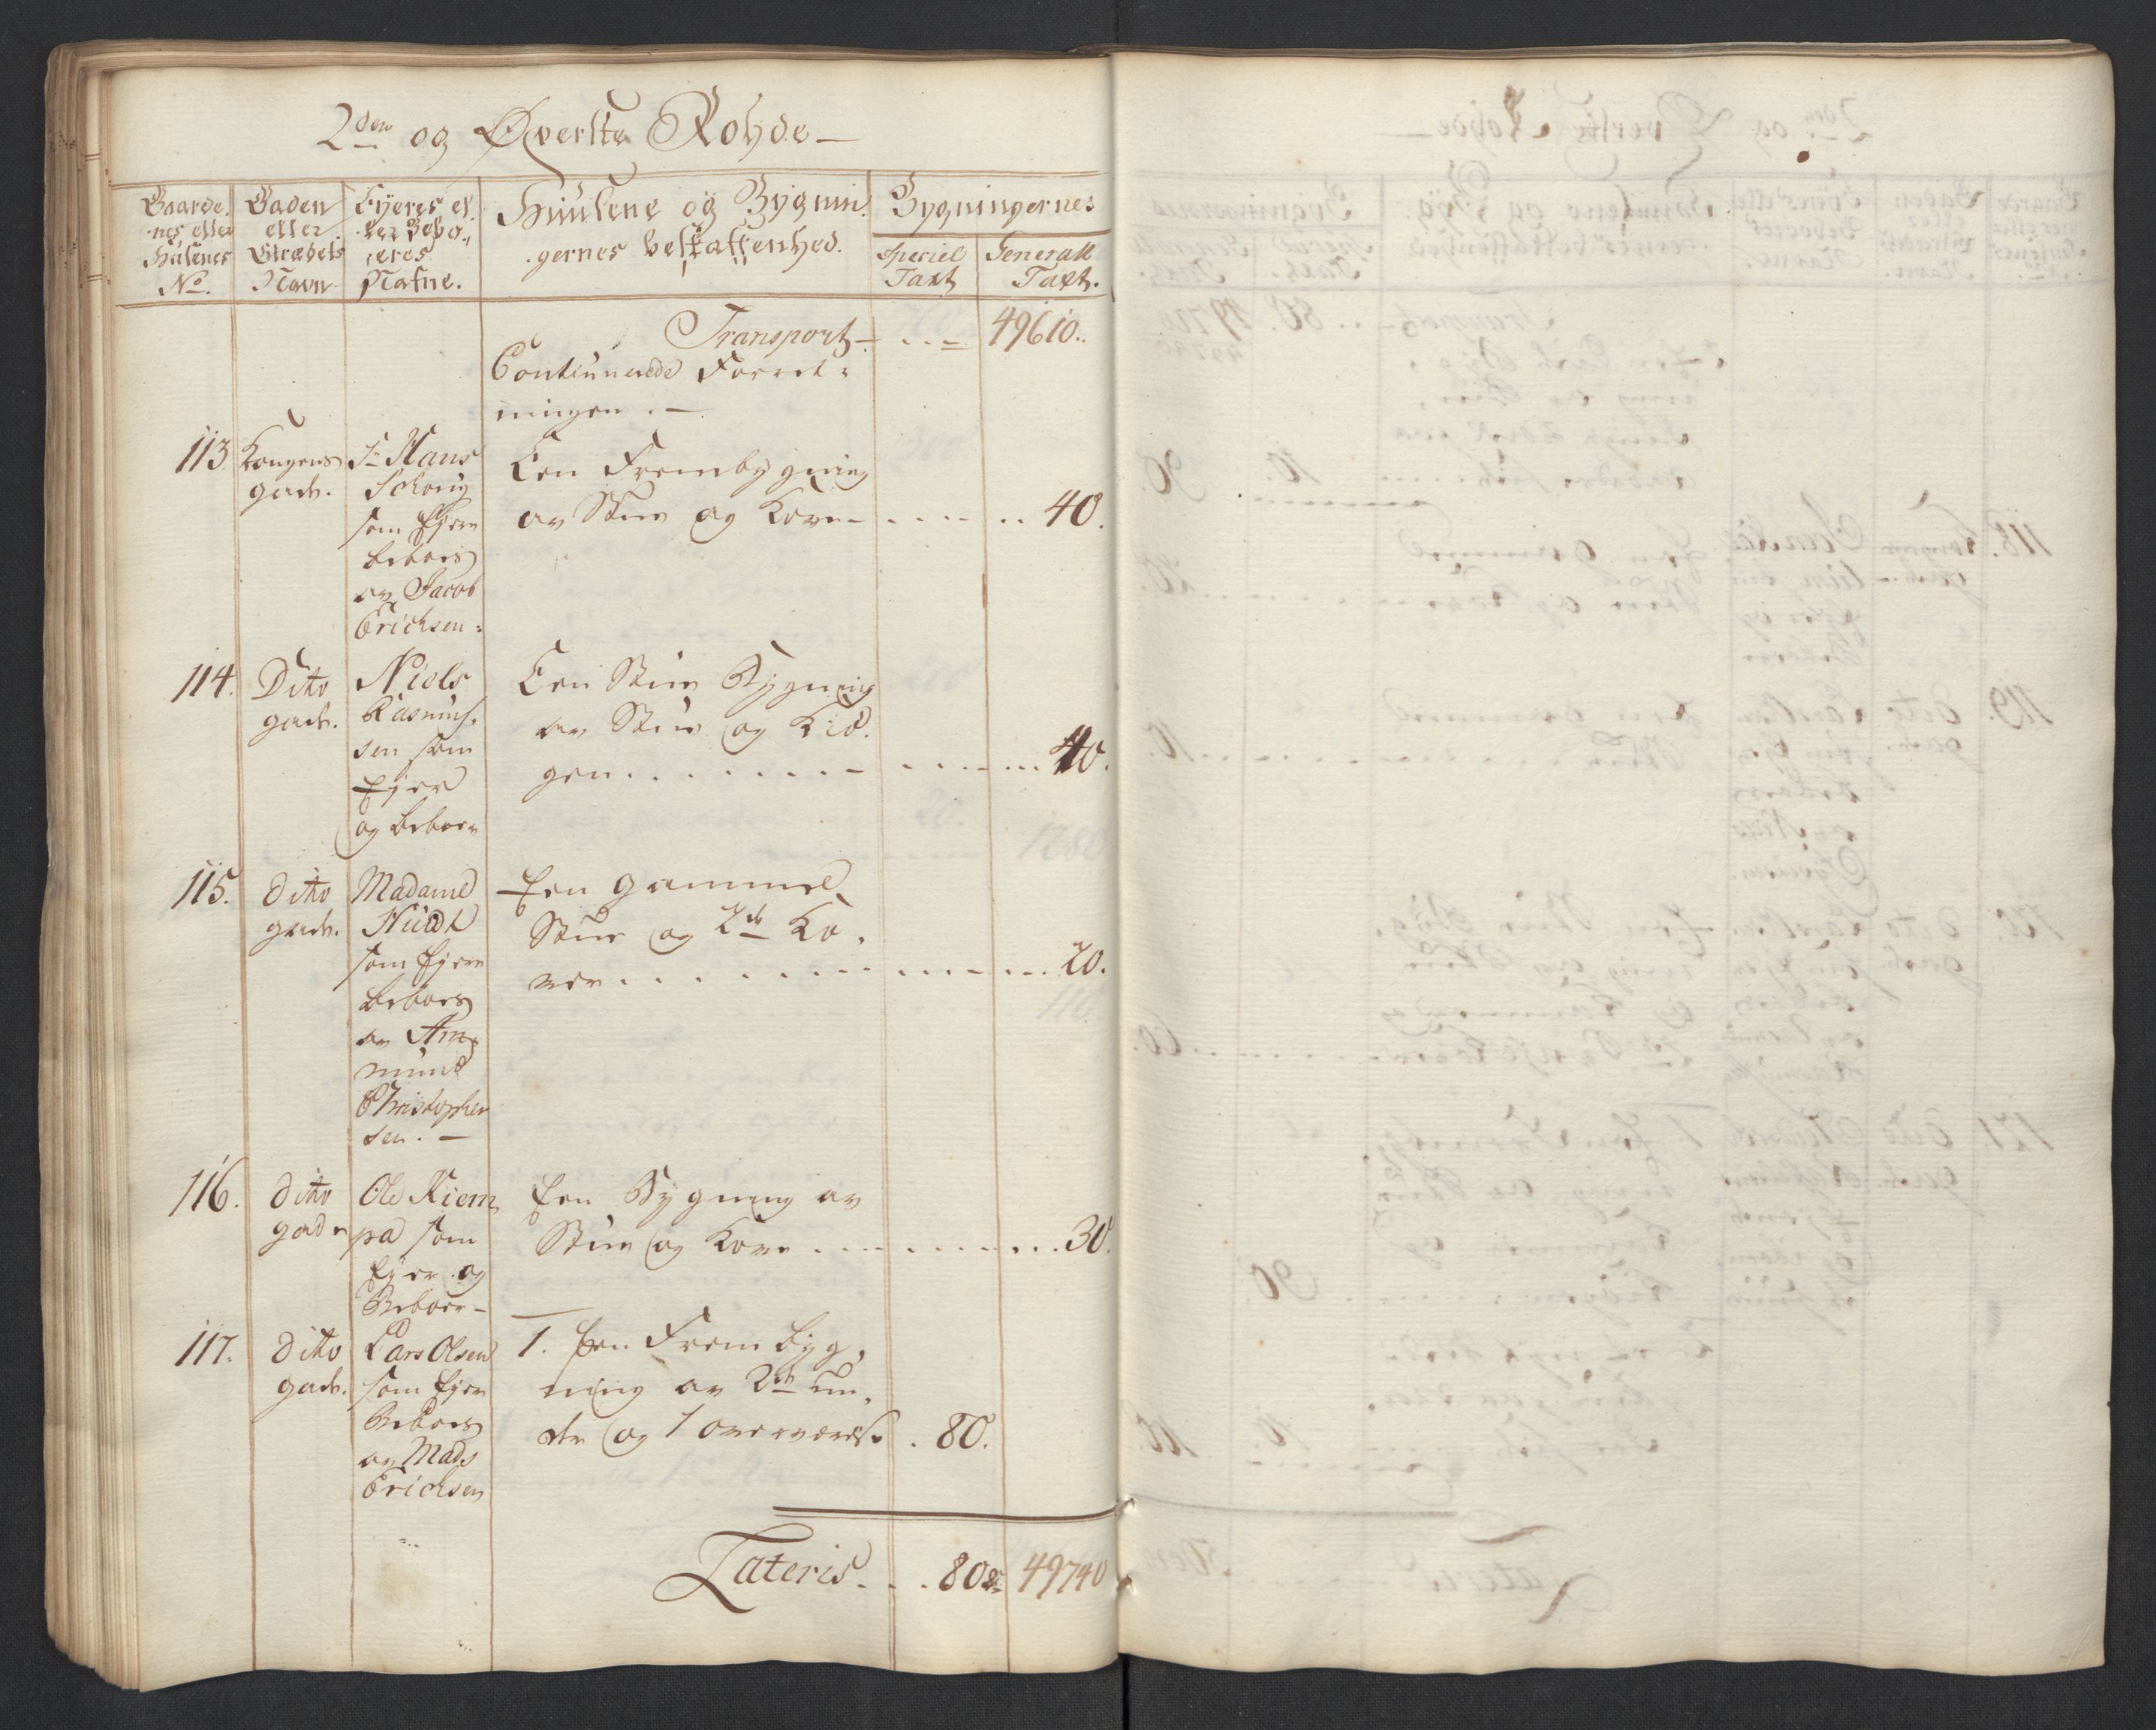 2den og Øverste Rohde
Gaardenes eller Huusenes No.
Gaden eller Strædets Navn
Eijeres eller Beboeres Nafne.
Huusene og Bygningernes beskaffenhed.
Bygningernes
Speciel Taxt
Generall Taxt.
Transport 49610.
Continuerede Forretningen.
113. Kongens gade.
Sr. Hans Schong som Ejer beboes av Jacob Erichsen
Een Frembygning
av Stue og Kove 40.
114. Dito gade.
Niels Rasmussen som Ejer og beboer
Een Stue Bygning
av Stue og Kiøkgen 40.
115. dito gade.
Madame som Ejer beboes av Ammund Christophersen.
Een gammel
Stue og 2de Kover 20.
116. dito gade
Ole Kiempa som Ejer og Beboer
Een Bygning av
Stue og Kove 30.
117. dito gade.
Lars Olsen som Ejer Beboes av Mads Erichsen
1. Een Frembygning av 2de undr og 1 overværelse 80.
Lateris 80 49740